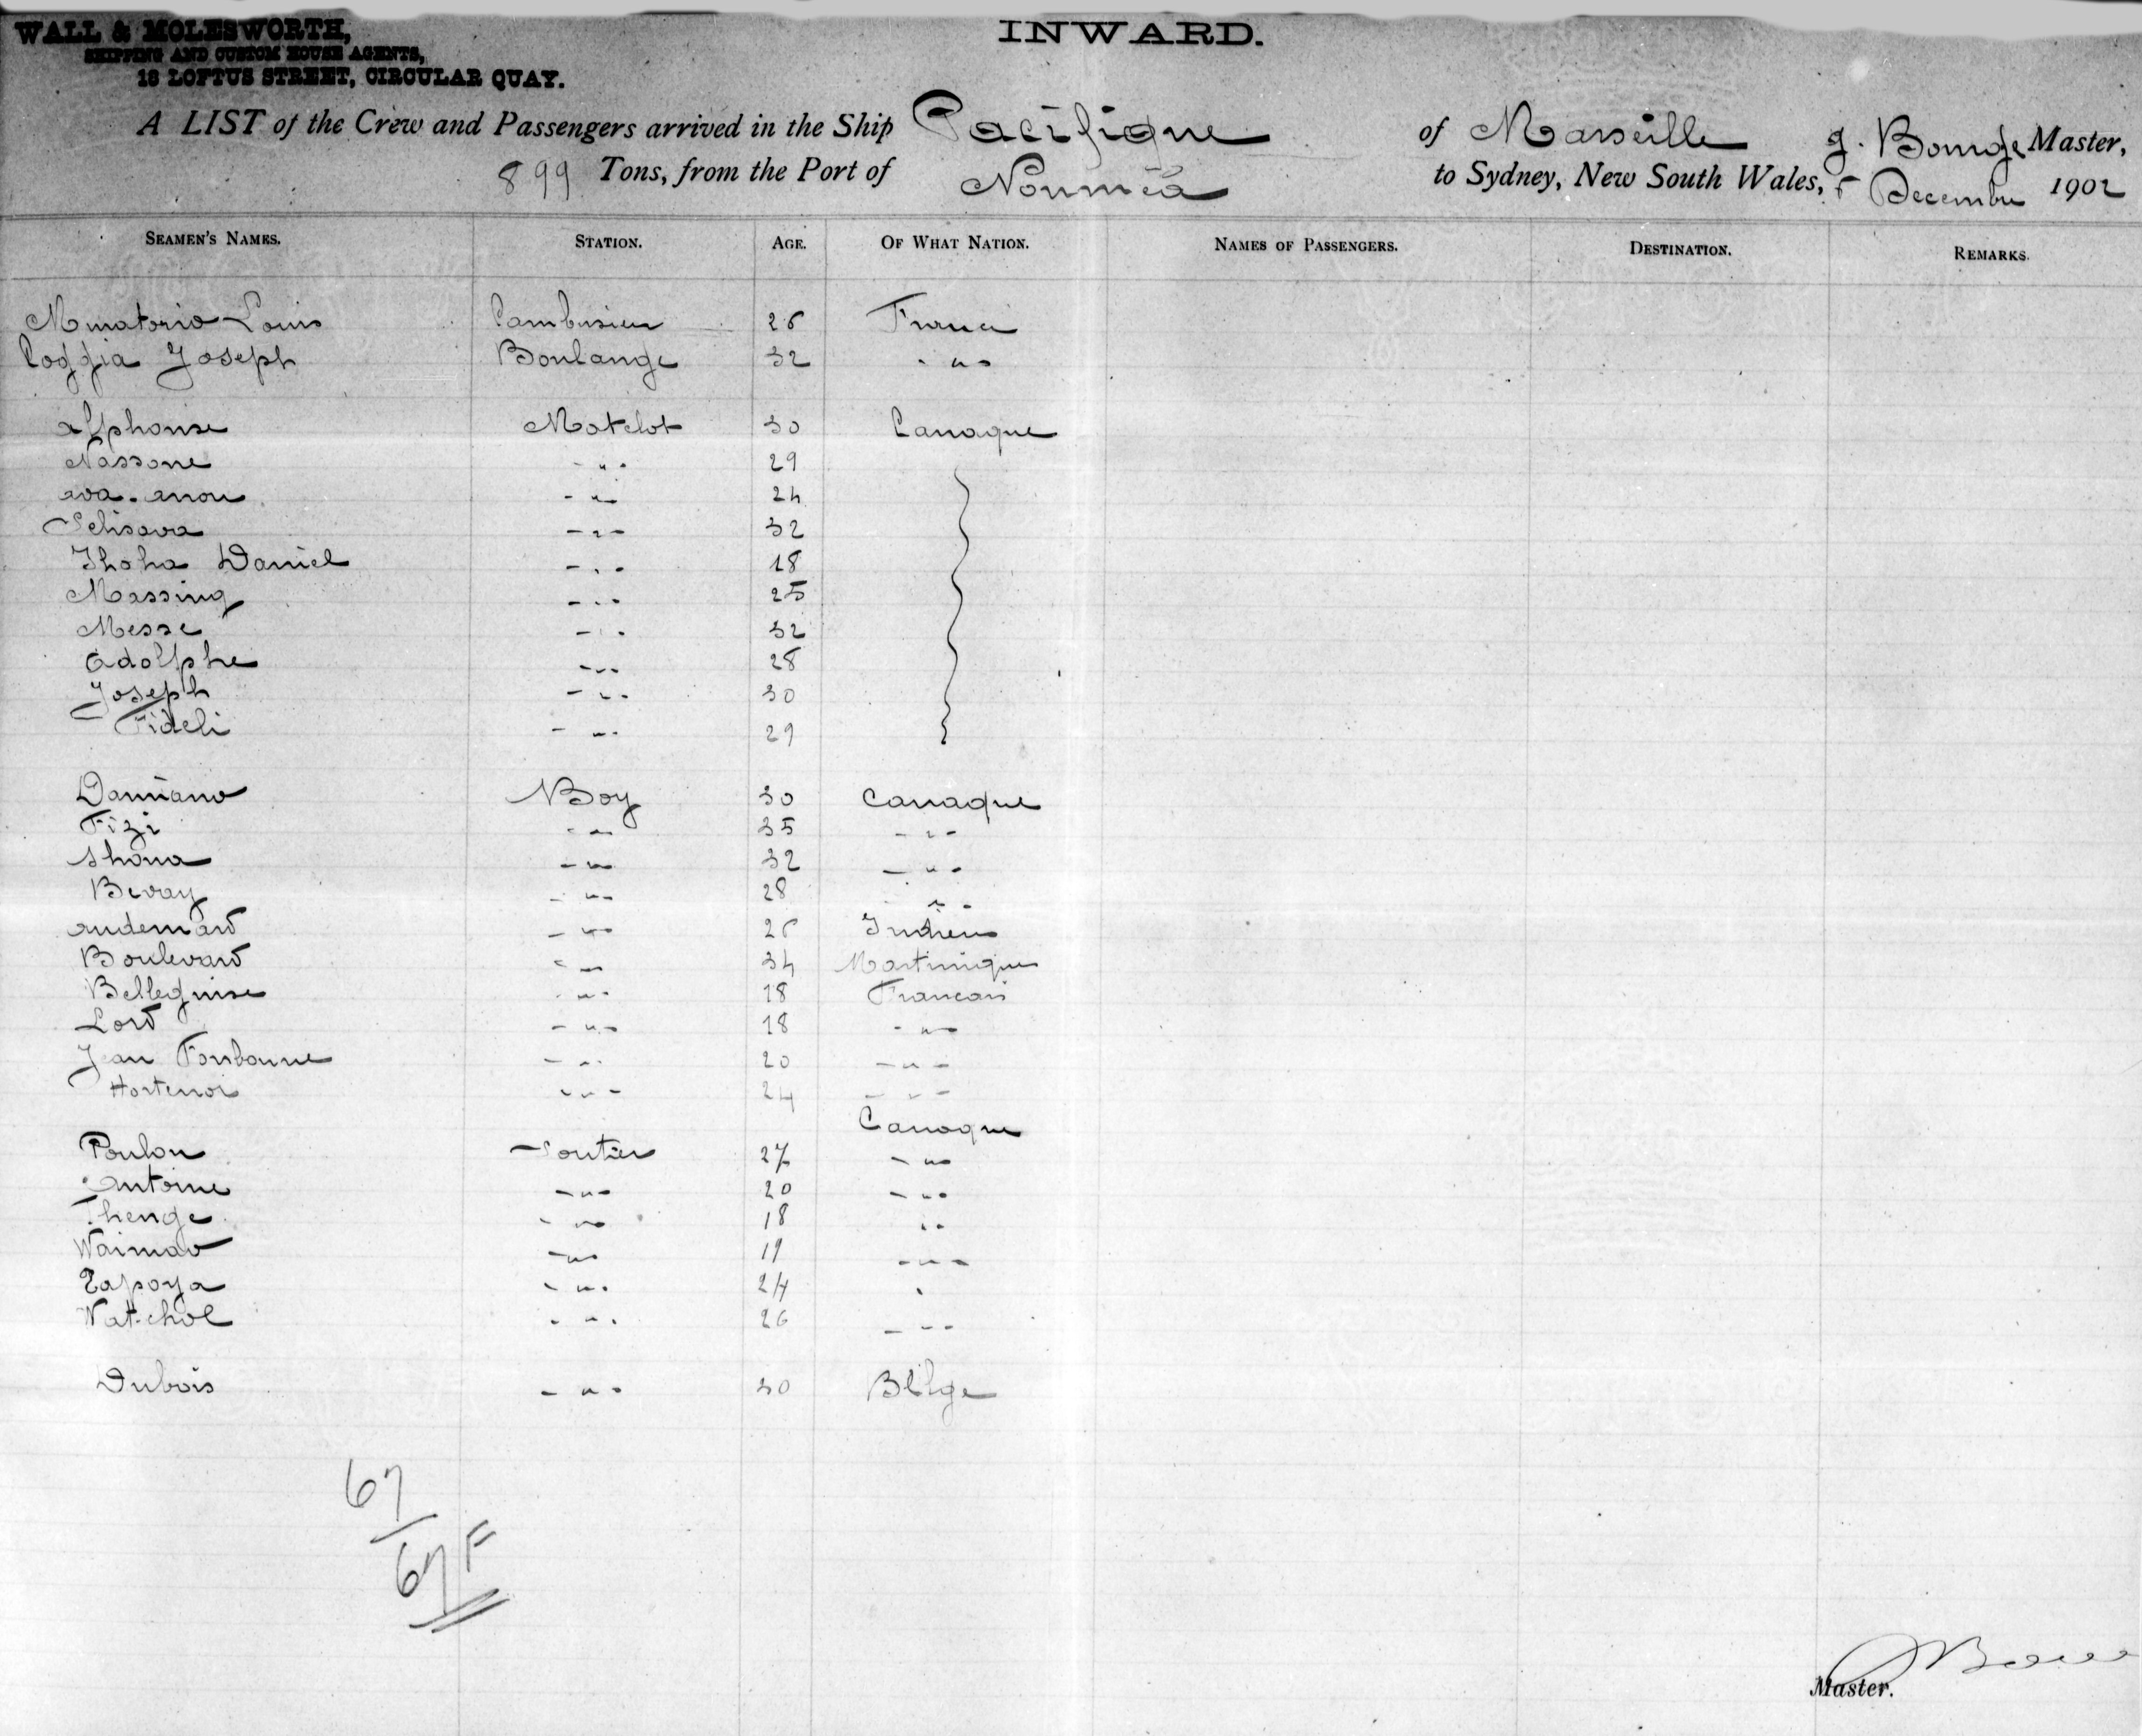 WALL & MOLESWORTH,
SHIPPING AND CUSTOM HOUSE AGENTS,
18 LOFTUS STREET, CIRCULAR QUAY.
INWARD.
A LIST of the Crew and Passengers arrived in the Ship Pacifique of Marseille g. Master,
899 Tons, from the Port of Nouméa to Sydney, New South Wales, December 1902
SEAMEN'S NAMES. STATION. AGE. OF WHAT NATION. NAMES OF PASSENGERS. DESTINATION. REMARKS.
Muratorio Louis Cambusier 26 France
Poggia Joseph Boulange 32 - " -
Alphonse Matelot 30 Canaque
Nassone - " - 29
ava. anou - " - 24
Selisava - " - 32
Thoha Daniel - " - 18
Massing - " - 25
Messe - " - 32
Adolphe - " - 28
Joseph - " - 30
Fideli - " - 29
Damiano Boy 30 Canaque
Fizi - " - 35 - " -
Shona - " - 32 - " -
Bevay - " - 28 - " -
Audemard - " - 26 Indien
Boulevard - " - 34 Martinique
Belleguise - " - 18 Francais
Lord - " - 18 - " -
Jean Fonbonne - " - 20 - " -
Hortenor - " - 24 - " -
Canaque
Poulou Soutier 27 - " -
Antoine - " - 20 - " -
Thenge - " - 18 " -
Waimao - " - 19 - " -
Tapoya - " - 24
Watchol - " - 26 - " -
Dubois - " - 30 Belge
67
67 F
Master.